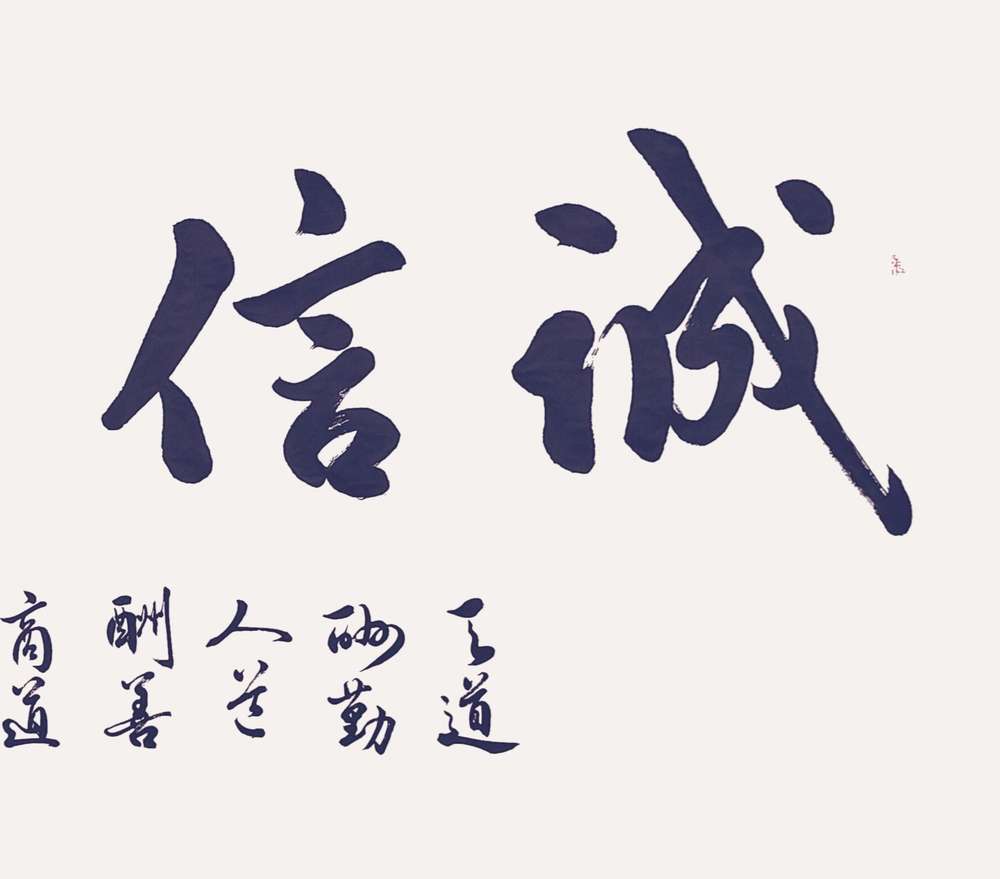 誠信
天道
酬勤
人道
酬善
商道